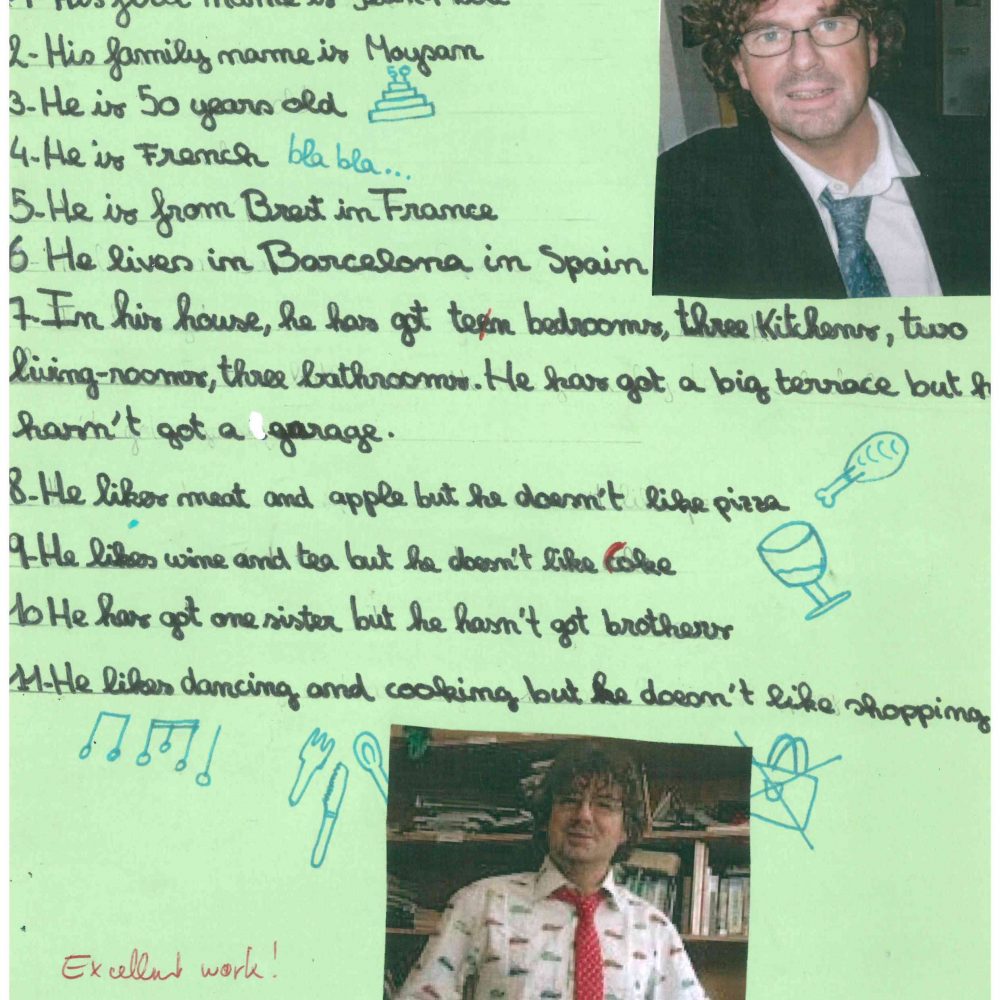 His first name is
2- His family name is Moysan
50
3- He is 50 years old
4- He is French bla bla...
5- He is from Brest in France
6 He lives in Barcelona in Spain
7- In his house, he has got ten bedrooms, three kitchens, two
living-rooms, three bathrooms. He has got a big terrace but h
hasn't got a garage.
8- He likes meat and apple but he doesn't like pizza
9- He likes wine and tea but he doesn't like Coke
10 He has got one sister but he hasn't got brothers
11- He likes dancing and cooking but he doesn't like shopping
Excellent work!